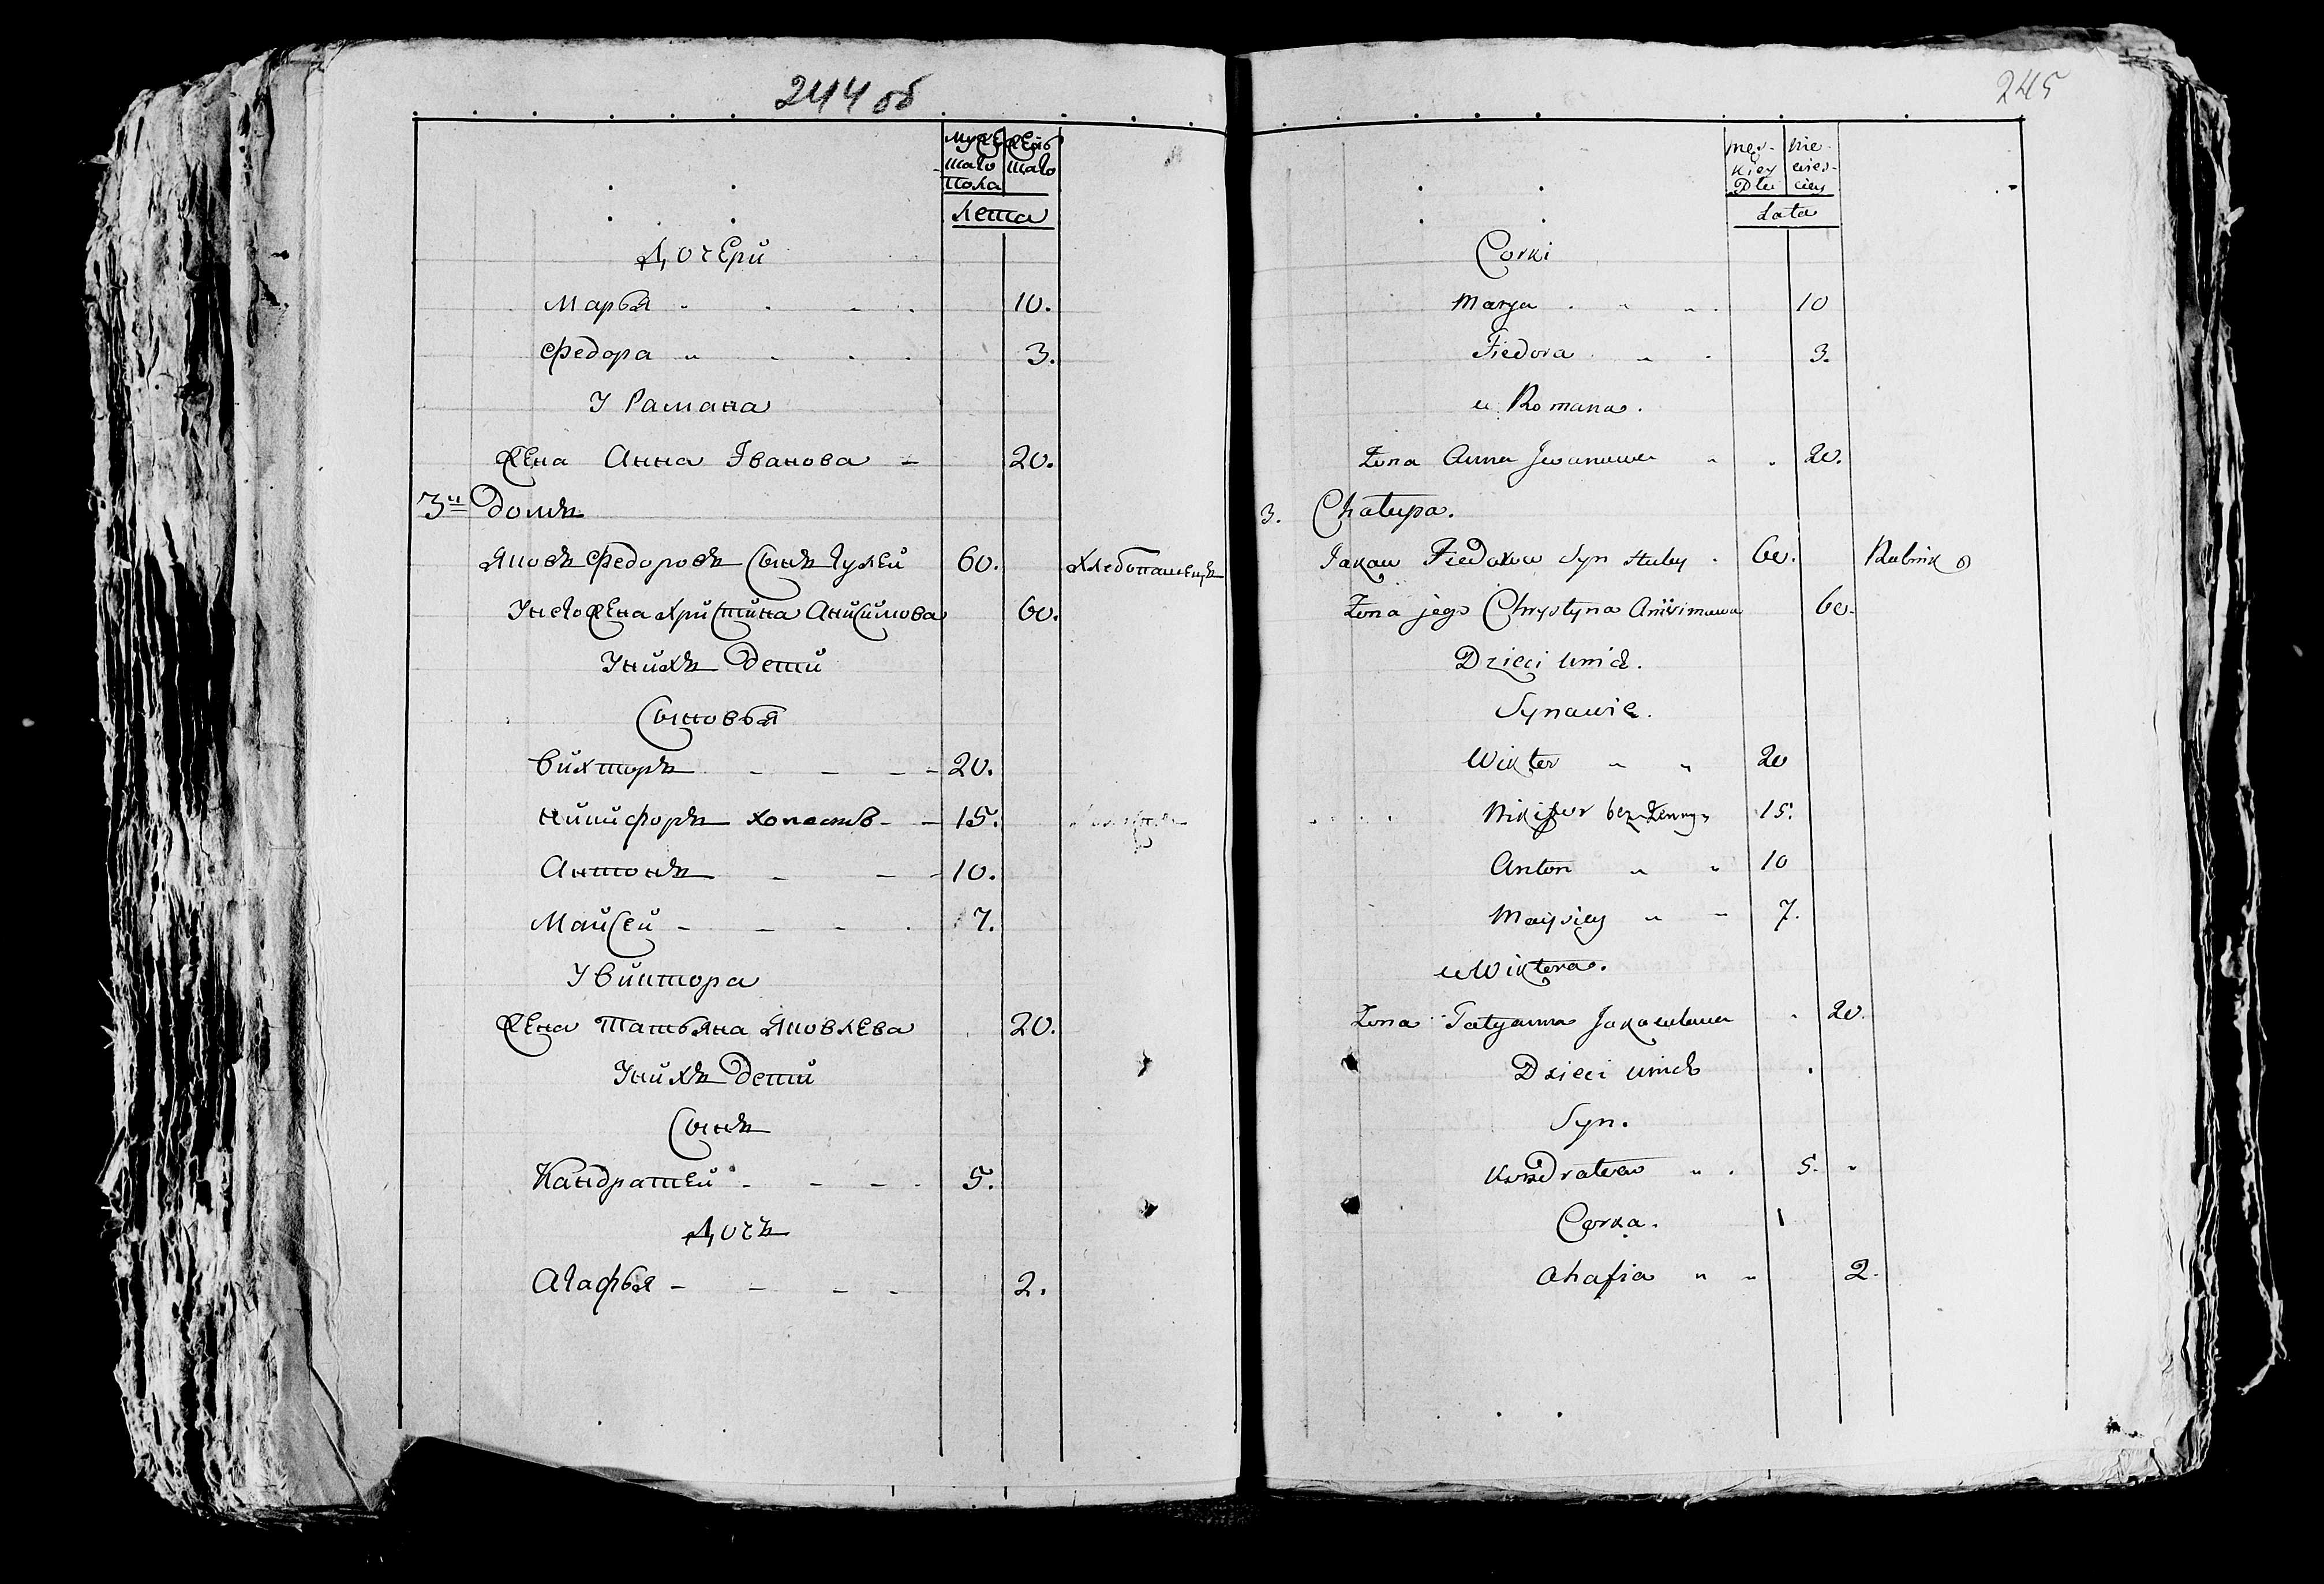 244 об
мужес каго пола
женс каго
лета
Дочери
Марья 10.
Федора 3.
У Рамана
Жена Анна Іванова 20.
3й Домъ
Яковъ Федоровъ Сынъ 60. хлебопашецъ
Унего Жена Христина Анисимова 60.
Унихъ Дети
Сыновья
Вихторъ 20.
Никифоръ холастъ 15.
Антонъ 10.
Майсей 7.
У Виктора
Жена Татьяна Яковлева 20.
Унихъ Дети
Сынъ
Кандратей 5.
Дочъ
Агафья 2.
245
męs-kiey Płci
nie-wies-ciey
Lata
Corki
Marya 10
Fiedora 3.
u Romana.
Żona Anna Iwanowa 20.
3. Chałupa.
Jakow Fiedorow Syn 60. Rolnik
Żona jego Chrystyna Anisimowa 60.
Dzieci unich.
Synowie.
Wikter 20
Nikifor bez-Żenny 15.
Anton 10
Maysiey 7.
u Wiktora.
Żona Tatyanna Jakowlewa 20.
Dzieci unich
Syn.
Kondratey 5.
Corka.
Ahafia 2.